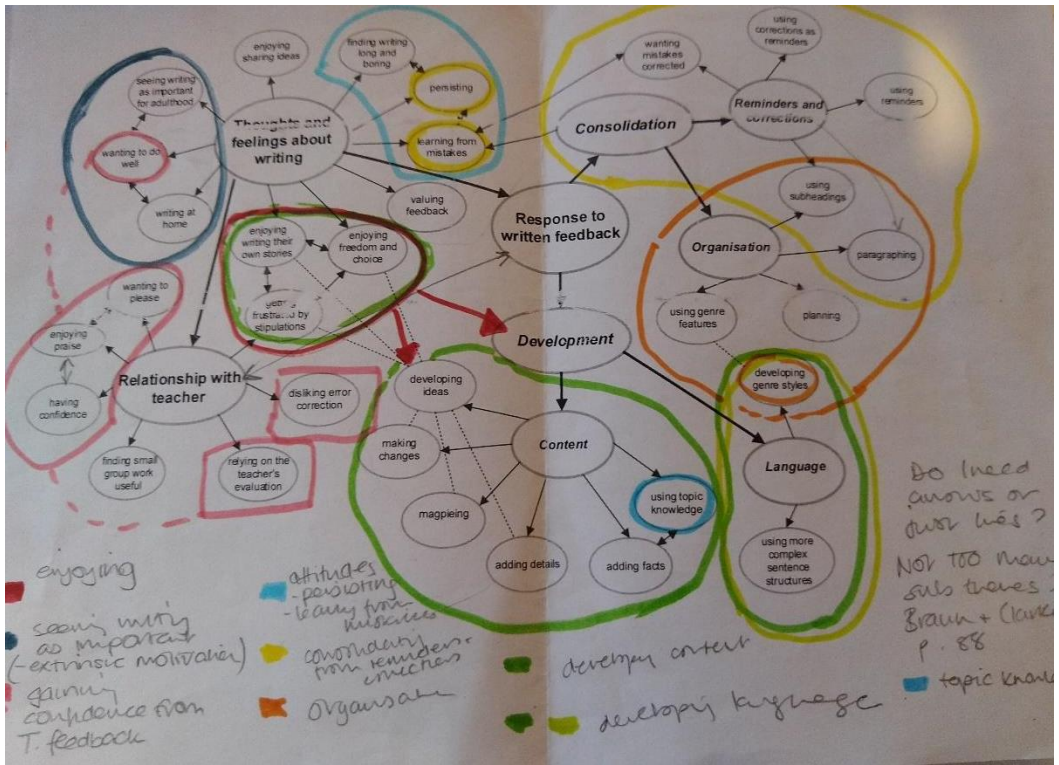 enjoying
sharing ideas
finding writing
long and
boring
persisting
learning from
mistakes
seeing writing
as important
for adulthood
wanting to do
well
writing at
home
Thoughts and
feelings about
writing
valuing
feedback
enjoying
writing their
own stories
enjoying
freedom and
choice
frustrated by
stipulations
wanting to
please
enjoying
praise
having
confidence
Relationship with
teacher
finding small
group work
useful
relying on the
teacher's
evaluation
disliking error
correction
Response to
written feedback
Consolidation
wanting
mistakes
corrected
using
corrections as
reminders
Reminders and
corrections
using
reminders
Organisation
using
subheadings
paragraphing
planning
using genre
features
Development
developing
ideas
making
changes
magpieing
adding details
adding facts
using topic
knowledge
Content
developing
genre styles
Language
using more
complex
sentence
structures
enjoying
seeing writing
as important
(-extrinsic motivation)
gaining
confidence from
T. feedback
attitudes
- persisting
- learning from
mistakes
consolidating
from reminders +
corrections
organisation
developing content
developing language
Do I need
arrows or
just lines?
Not too many
sub themes
Braun + Clarke
p. 88
topic